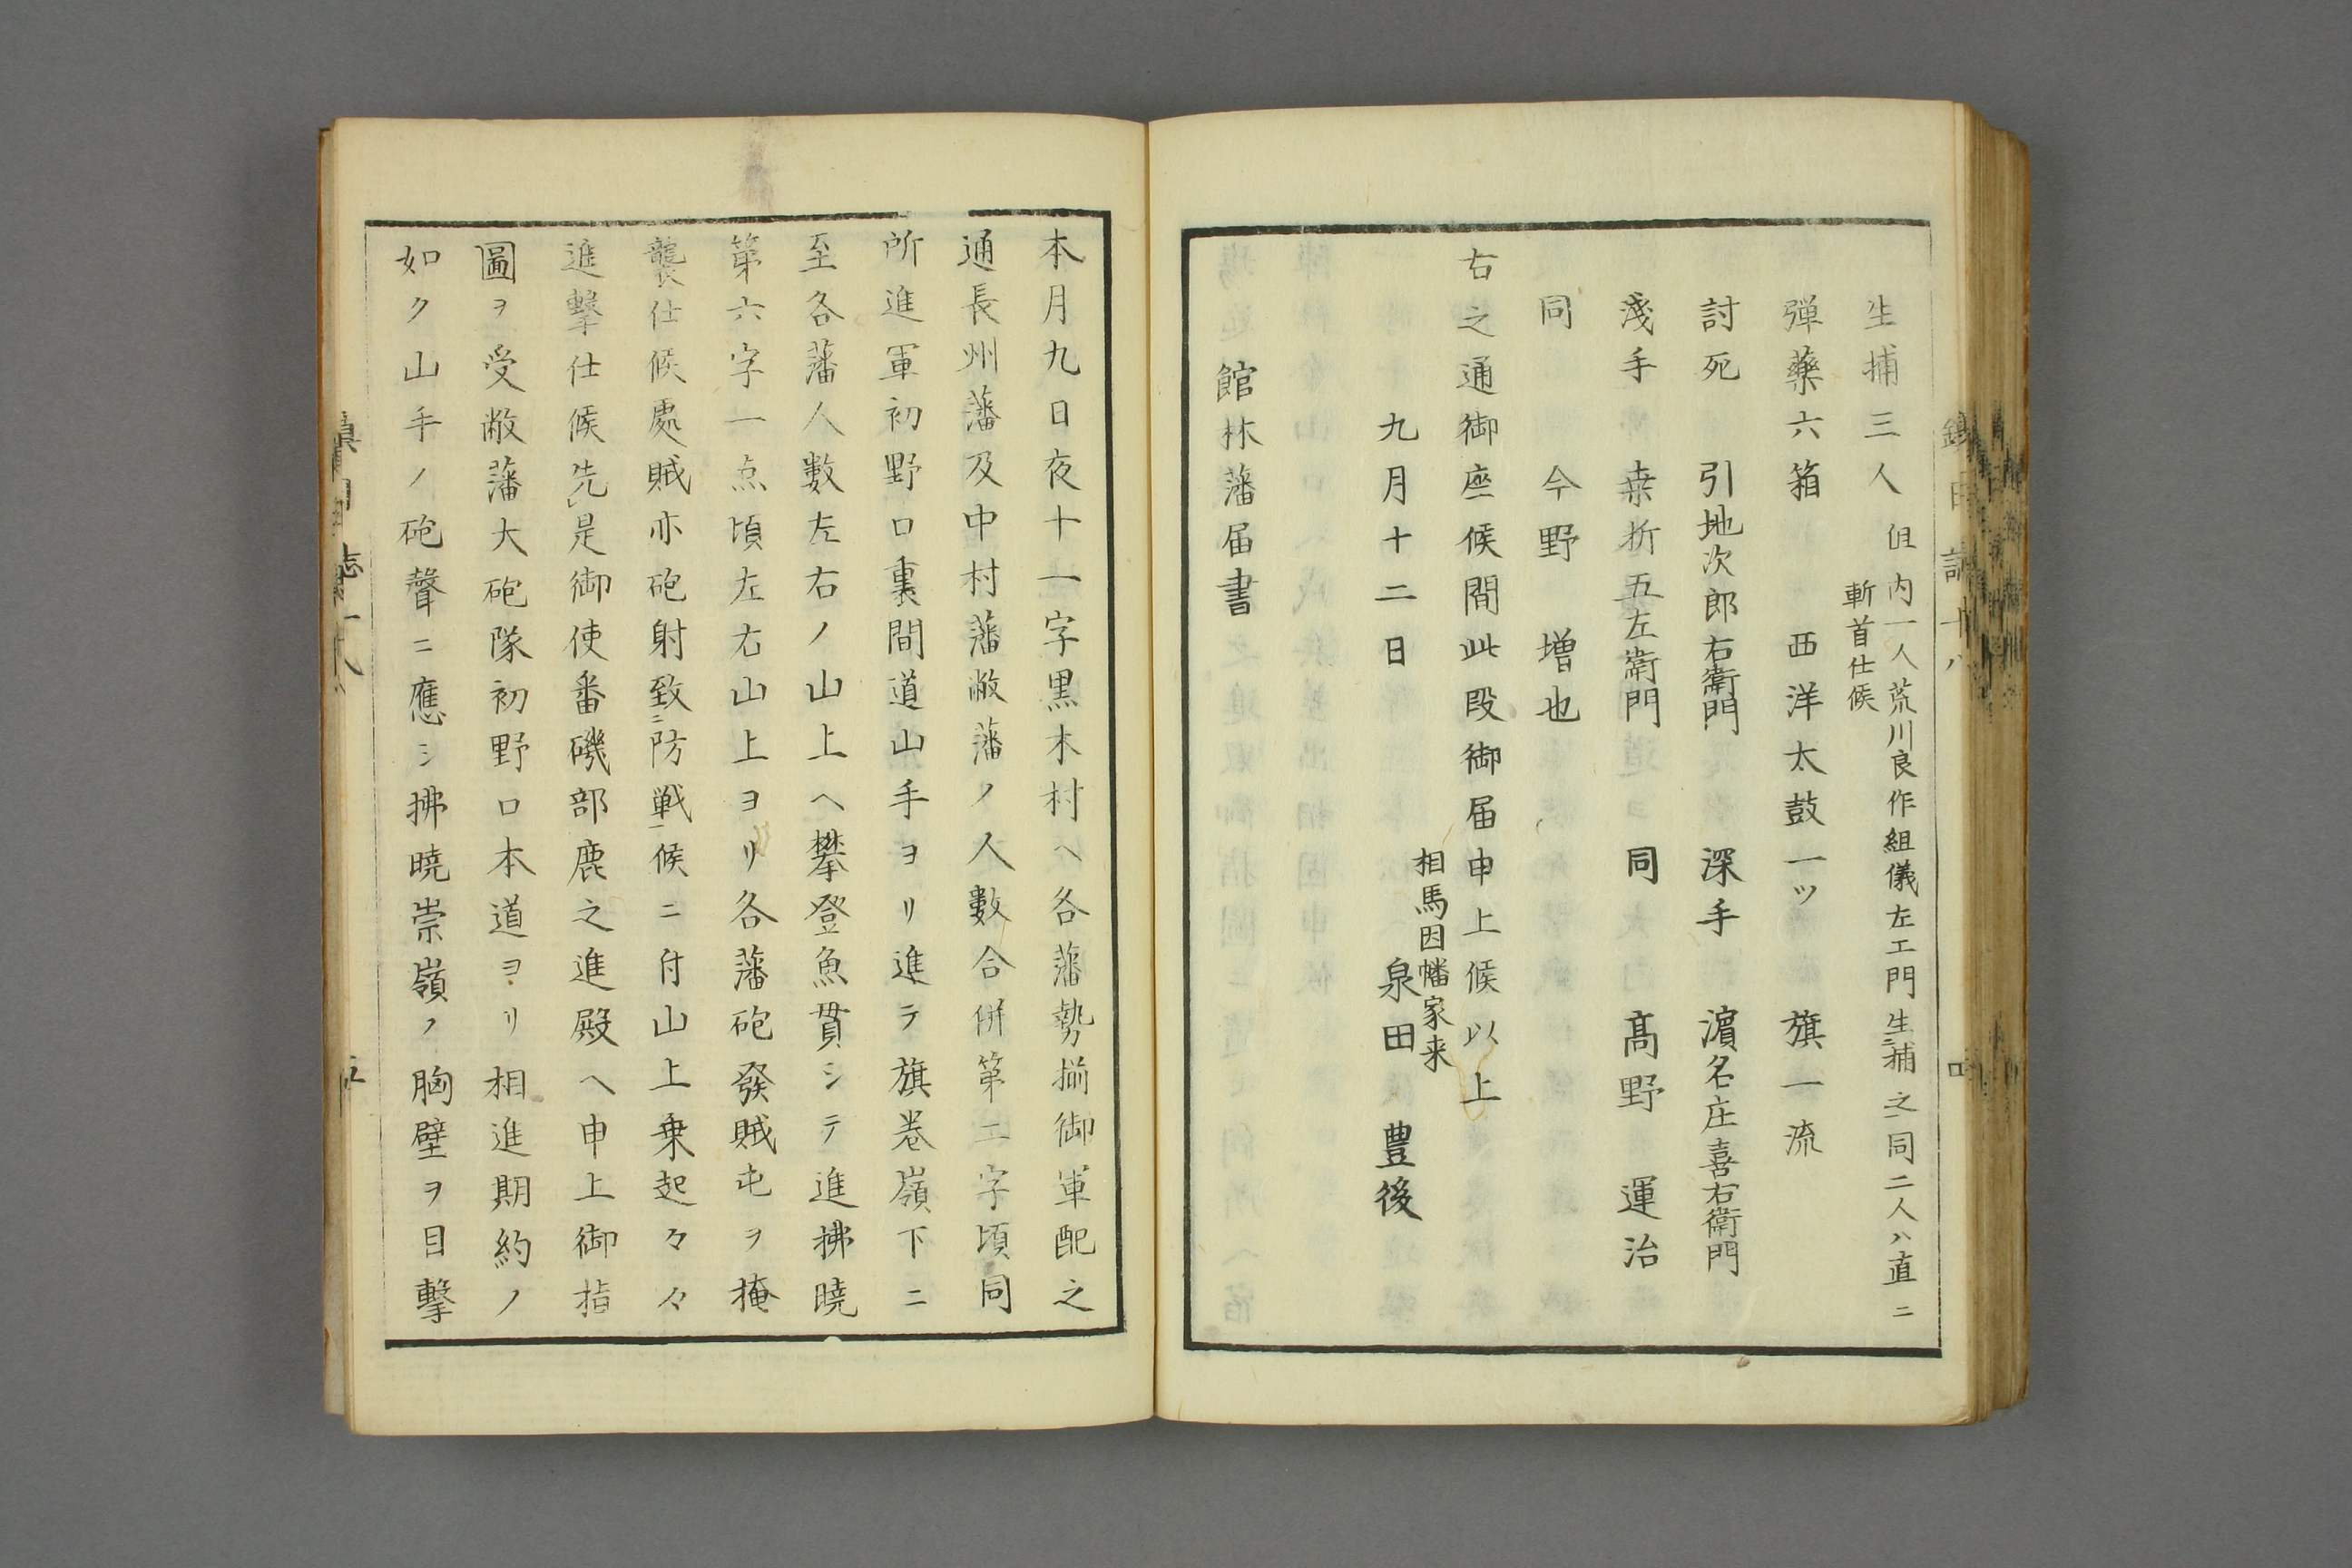 生捕三人 但内一人荒川良作組儀左エ門生ニ捕之同二人ハ直ニ
斬首仕候
弾藥六箱 西洋太鼓一ツ 旗一流
討死 引地次郎右衛門 深手 濵名庄喜右衛門
淺手 桒折五左衛門 同 髙野 運治
同 今野 増也
右之通御座候間此段御届申上候以上
相馬因幡家来
九月十二日 泉田 豊後
館林藩届書
本月九日夜十一字黒木村へ各藩勢揃御軍配之
通長州藩及中村藩敝藩ノ人數合併第二字頃同
所進軍初野口裏間道山手ヨリ進テ旗巻嶺下ニ
至各藩人數左右ノ山上へ攀登魚貫シテ進拂曉
第六字一点頃左右山上ヨリ各藩砲發賊屯ヲ掩
襲仕候處賊亦砲射致ニ防戦一候ニ付山上乗起々々
進撃仕候先レ是御使番磯部鹿之進殿へ申上御指
圖ヲ受敝藩大砲隊初野口本道ヨリ相進期約ノ
如ク山手ノ砲聲ニ應シ拂曉崇嶺ノ胸壁ヲ目撃